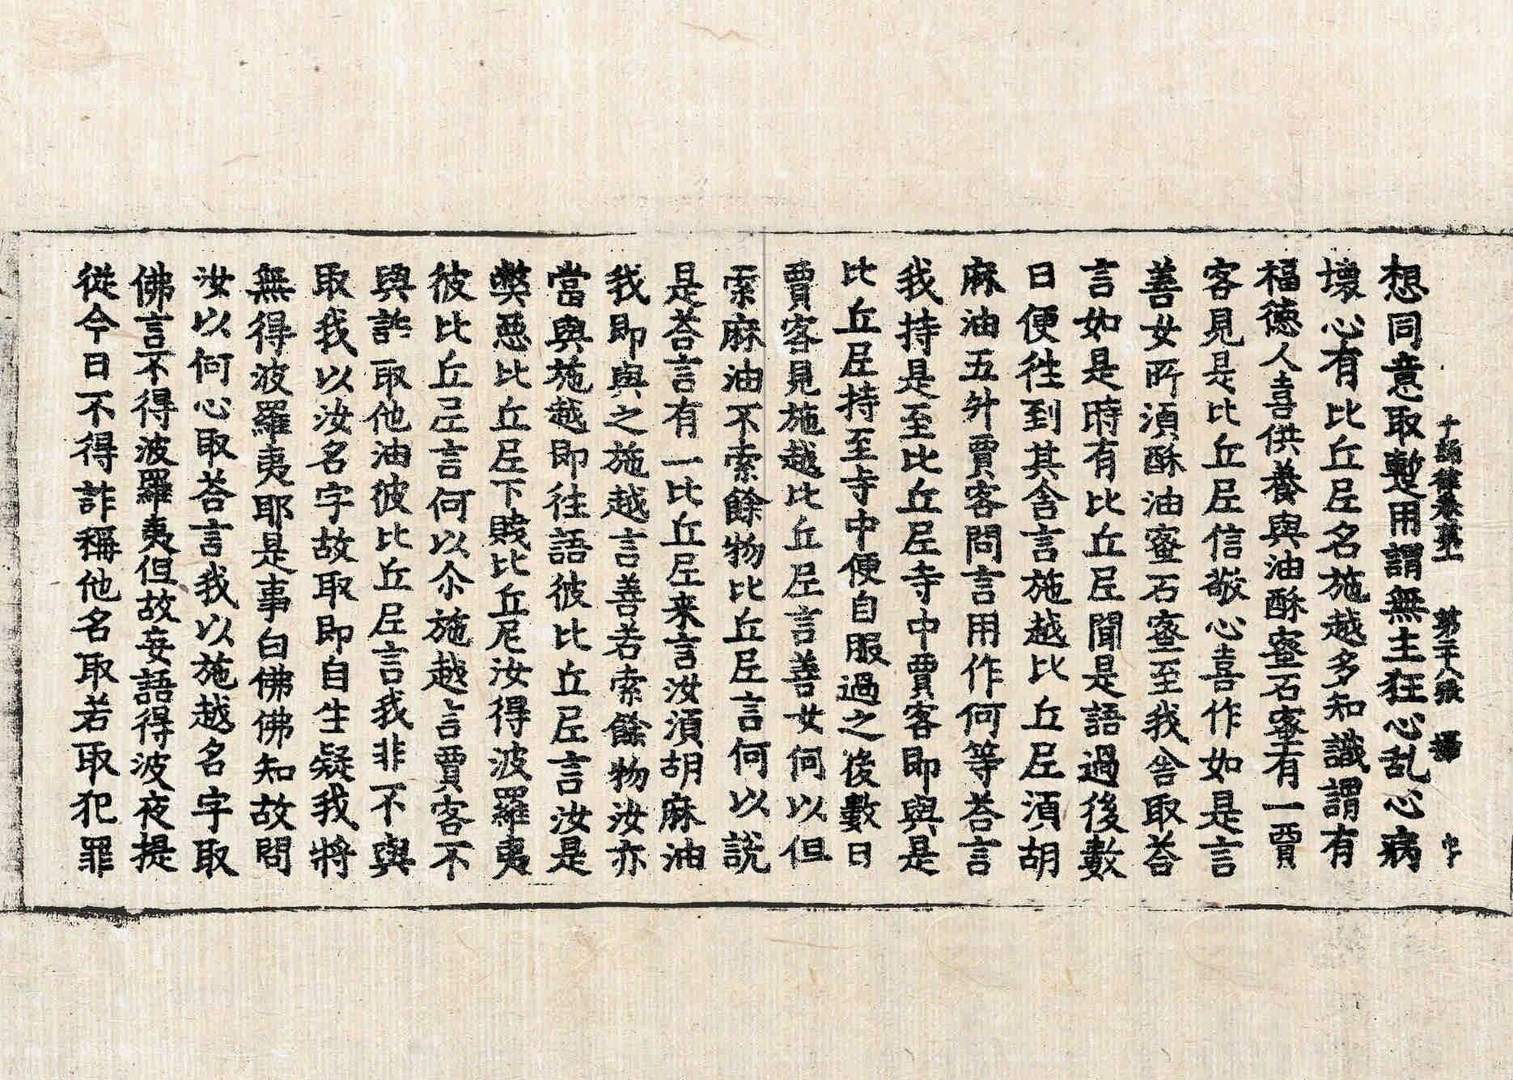 十誦律卷第一 第二十八張 攝 字
想同意取蹔用謂無主狂心乱心病
壞心有比丘尼名施越多知識謂有
福德人喜供養與油酥蜜石蜜有一賈
客見是比丘尼信敬心喜作如是言
善女所湏酥油蜜石蜜至我舍取荅
言如是時有比丘尼聞是語過後數
日便徃到其舍言施越比丘尼湏胡
麻油五升賈客問言用作何等荅言
我持是至比丘尼寺中賈客即與是
比丘尼持至寺中便自服過之後數日
賈客見施越比丘尼言善女何以但
索麻油不索餘物比丘尼言何以說
是荅言有一比丘尼来言汝湏胡麻油
我即與之施越言善若索餘物汝亦
當與施越即徃語彼比丘尼言汝是
弊惡比丘尼下賤比丘尼汝得波羅夷
彼比丘尼言何以尒施越言賈客不
與詐取他油彼比丘尼言我非不與
取我以汝名字故取即自生疑我將
無得波羅夷耶是事白佛佛知故問
汝以何心取荅言我以施越名字取
佛言不得波羅夷但故妄語得波夜提
從今日不得詐稱他名取若取犯罪